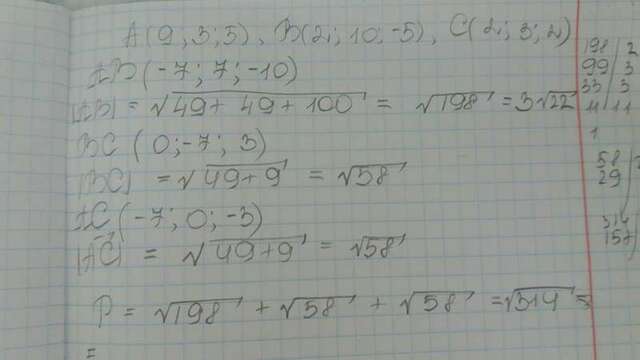 A(9; 3; 5), B(2; 10; -5), C(2; 3; 2)
AB(-7; 7; -10)
|AB| = √49+49+100 = √198 = 3√22
BC (0; -7; 3)
|BC| = √49+9 = √58
AC (-7; 0; -3)
|AC| = √49+9 = √58
P = √198 + √58 + √58 = √314 =
=
198 | 2
99 | 3
33 | 3
11 | 11
1
58 | 2
29
314
157